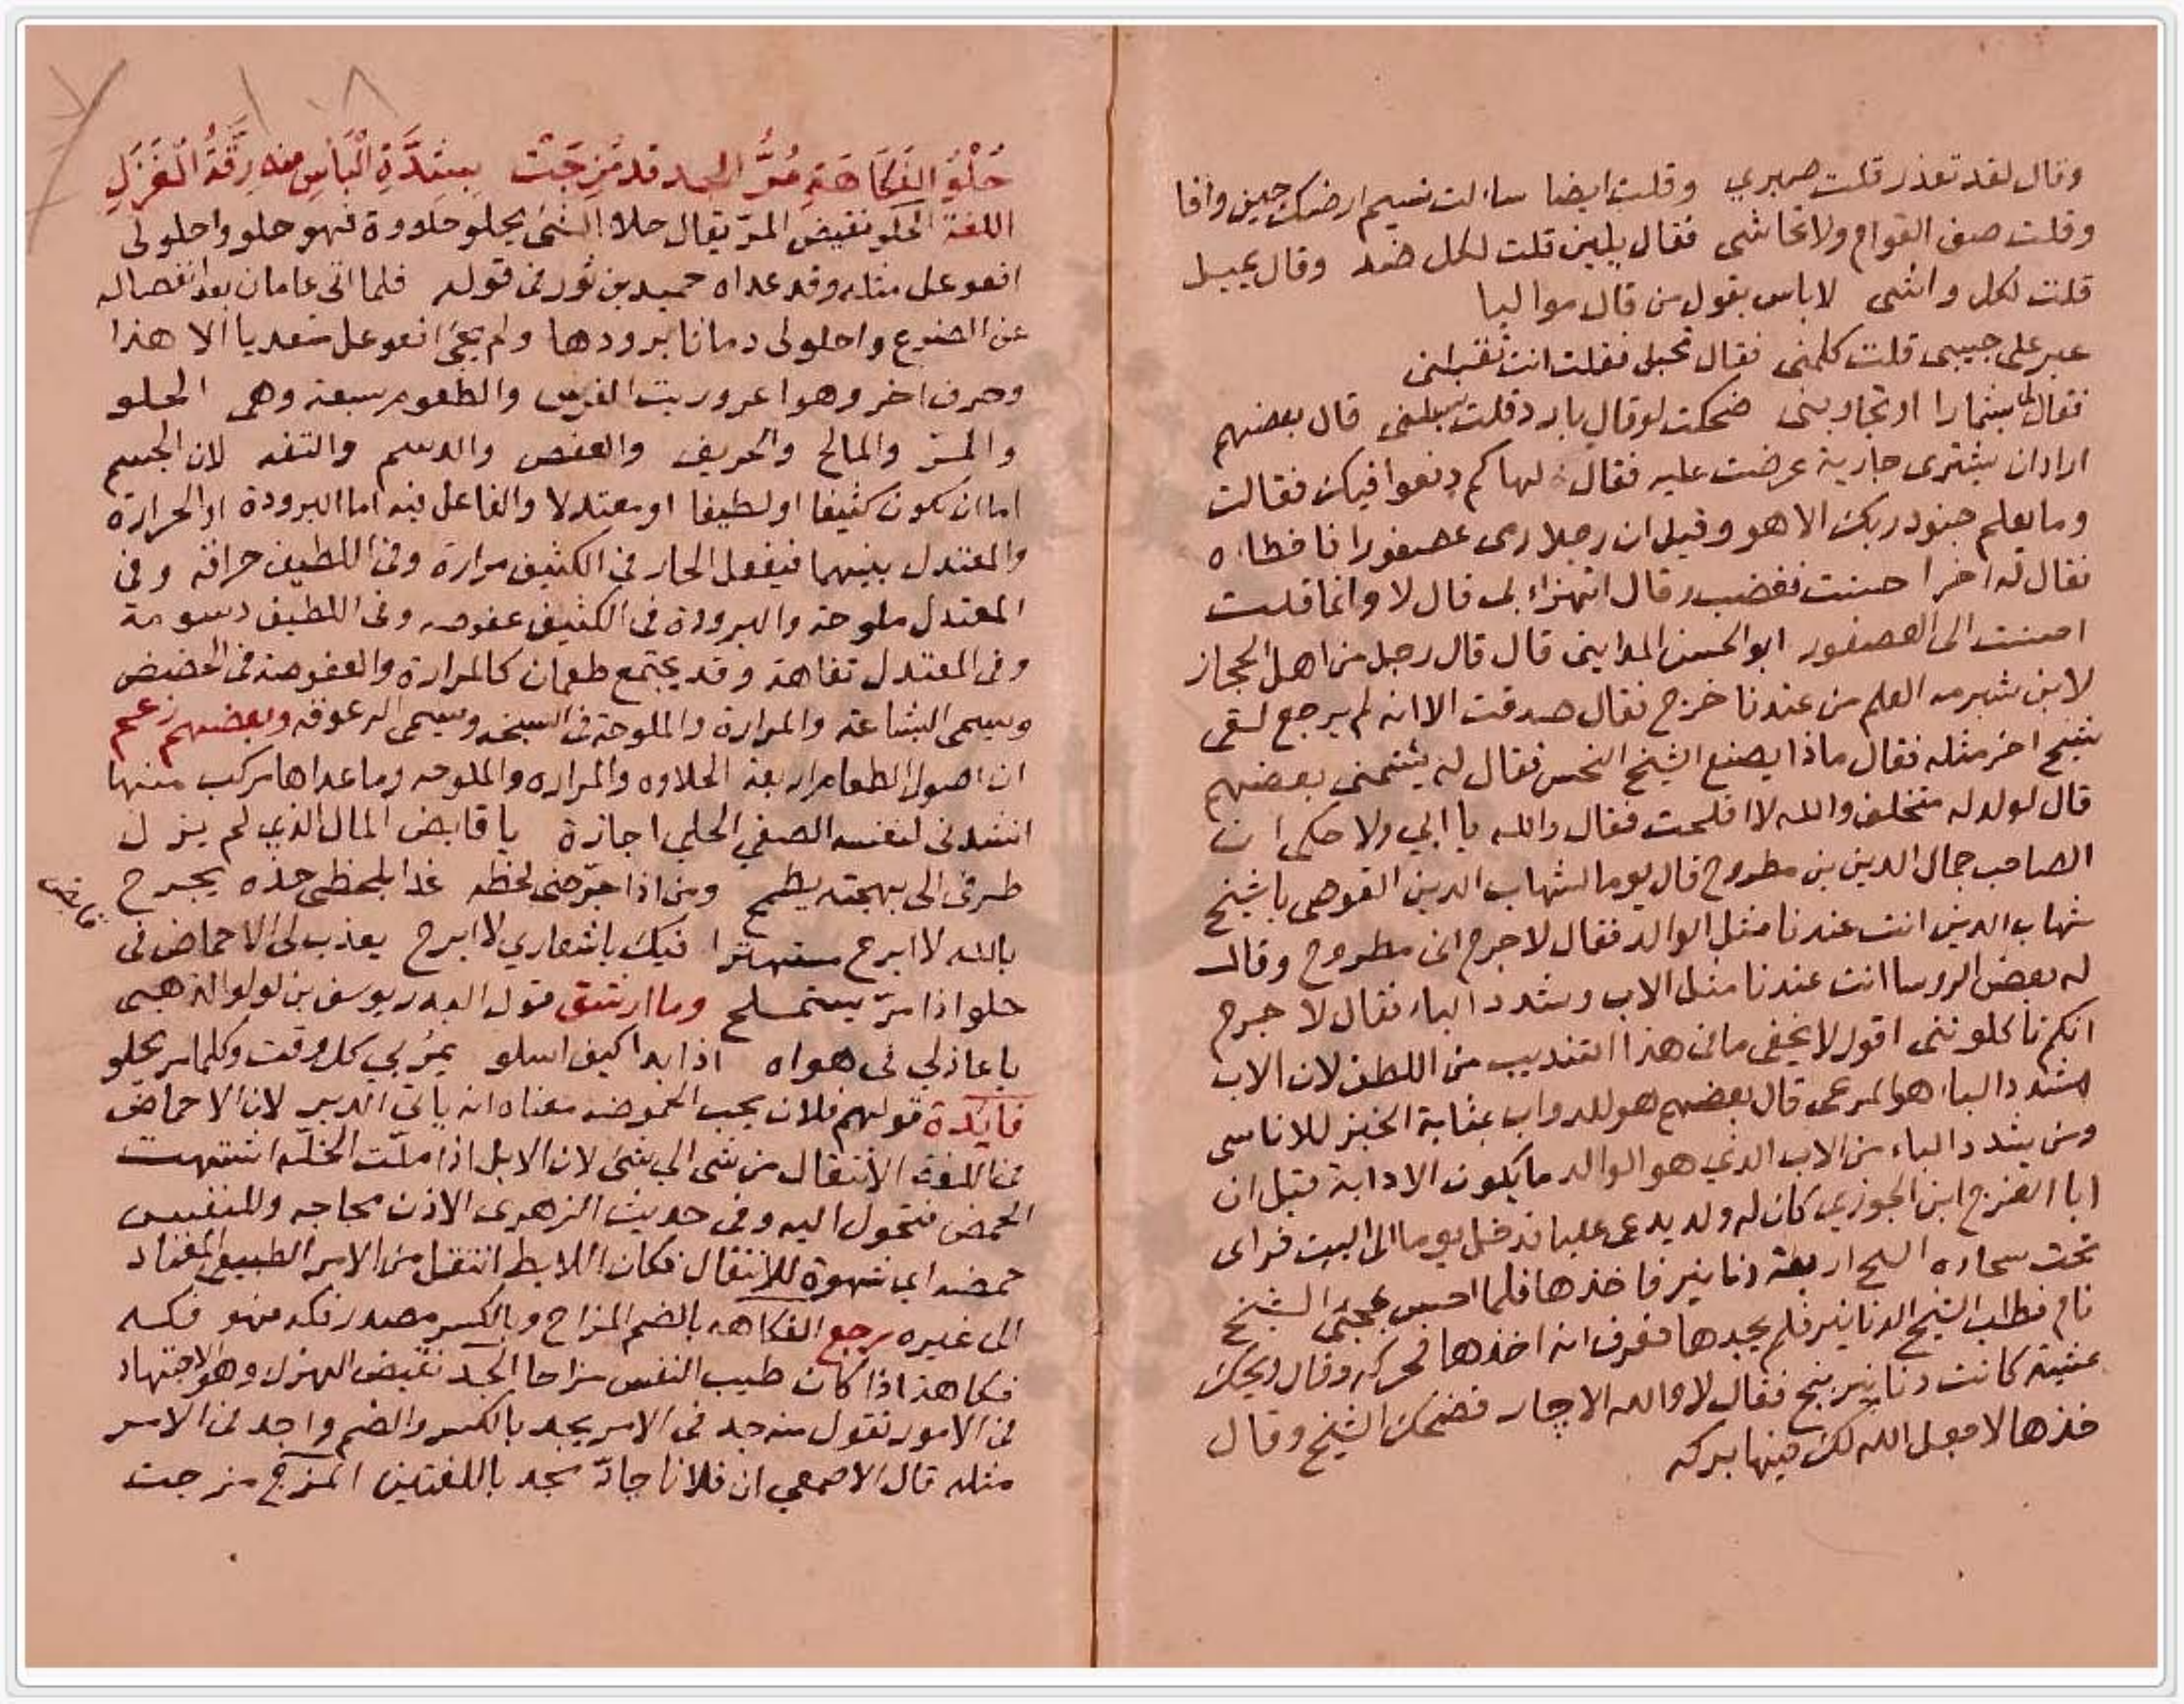 وقال لقد تعذر قلت صبري وقلت ايضا سالت نسيم ارضك حين وافا
وقلت صف القوام ولا تحاشي فقال يلين قلت لكل ضد وقال يميل
قلت لكل واشي لا باس بقول من قال مواليا
عبر على حبيبي قلت كلمني فقال تحبل فقلت انت تقبلني
فقال لي بثمارا او تجاربني ضحكت لو قال بارد قلت قال بعضهم
اراد ان يشترى جارية عرضت عليه فقال لها كم دفعوا فيكن فقالت
وما يعلم جنود ربك الا هو وقيل ان رجلا رمى عصفورا فاخطاه
فقال له اخر احسنت فغضب وقال اتهزاء بي قال لا وانما قلت
احسنت الى العصفور ابو الحسن المدايني قال قال رجل من اهل الحجاز
لابن شبرمه العلم من عندنا خرج فقال صدقت الا انه لم يرجع لقى
شيخ اخر مثله فقال ماذا يصنع الشيخ النحس فقال له يشتمني بعضهم
قال لولد له متخلف والله لا افلحت فقال والله يا ابي ولا حكى ان
الصاحب جمال الدين بن مطروح قال يوما لشهاب الدين القوصي يا شيخ
شهاب الدين انت عندنا مثل الوالد فقال لا جرم انى مطروح وقال
له بعض الروسا انت عندنا مثل الاب وشدد الباء فقال لا جرم
انكم تاكلونني اقول لا يخفى ما في هذا التنديب من اللطف لان الاب
مشدد الباء هو المرعى قال بعضهم هو للدواب بمثابة الخبز للاناسى
ومن يشدد الباء من الاب الذي هو الوالد ما يكون الا دابة قيل ان
ابا الفرج ابن الجوزي كان له ولد يدعى عليا فدخل يوما الى البيت فراى
تحت سجاده الشيخ اربعة دنانير فاخذها فلما احس بمجئ الشيخ
نام فطلب الشيخ الدنانير فلم يجدها فعرف انه اخذها فحركه وقال ويحك
عشية كانت دنانير بنج فقال لا والله الا جار فضحك الشيخ وقال
خذها لا جعل الله لك فيها بركه
حُلْوُ الفَكَاهَةِ مُرُّ الجد قد مُزِجَتْ بِشِدَّةِ الْبَأسِ منه رِقَّةُ الْغَزَلِ
اللغة الحلو نقيض المرّ يقال حلا الشئ يحلو حلاوة فهو حلو واحلولى
افعوعل مثله وقد عداه حميد بن ثور في قوله فلما اتى عامان بعد انفصاله
عن الضرع واحلولى دماثا يرودها ولم يجئ افعوعل متعديا الا هذا
وحرف اخر وهو اعروريت الفرس والطعوم سبعة وهى الحلو
والمر والمالح والحريف والعفص والدسم والتفه لان الجسم
اما ان يكون كثيفا او لطيفا او معتدلا والفاعل فيه اما البرودة او الحرارة
والمعتدل بينهما فيفعل الحار في الكثيف مرارة وفي اللطيف حرافة وفى
المعتدل ملوحة والبرودة في الكثيف عفوصه وفى اللطيف دسومة
وفى المعتدل تفاهة وقد يجتمع طعمان كالمرارة والعفوصة في الحضيض
ويسمى البشاعة والمرارة والملوحة في السبخه ويسمى الزعوقه وبعضهم زعم
ان اصول الطعام اربعة الحلاوه والمراره والملوحه وما عداها مركب منها
انشدنى لنفسه الصفي الحلي اجازة يا قابض المال الذي لم يزل
طرفى الى بهجته يطمح ومن اذا جرّحنى لحظه غدا بلحظى خده يجرح
بالله لا ابرح مستهترا فيك باشعاري لا ابرح يعذب لى الاحماض في
حلو اذا مرّ يستملح وما ارشق قول البدر يوسف بن لولو الذهبى
يا عاذلي في هواه اذا بدا كيف اسلو يمُر بي كل وقت وكلما مر يحلو
فايدة قولهم فلان يحب الحموضه معناه انه ياتي الدبر لان الاحماض
في اللغة الانتقال من شى الي شئ لان الابل اذا ملّت الخلّه اشتهت
الحمض فتحول اليه وفى حديث الزهرى الاذن مجاجه وللنفس
حمضه اي شهوة للانتقال فكان اللايط انتقل من الامر الطبيعي المعتاد
الى غيره يرجع الفكاهه بالضم المزاح وبالكسر مصدر فكه فهو فكه
فكاهة اذا كان طيب النفس مزاحا الجد نقيض الهزل وهو الاجتهاد
في الامور تقول منه جد في الامر يجد بالكسر والضم واجد في الامر
مثله قال الاصمعي ان فلانا جادّ مجد باللغتين المزج مزجت